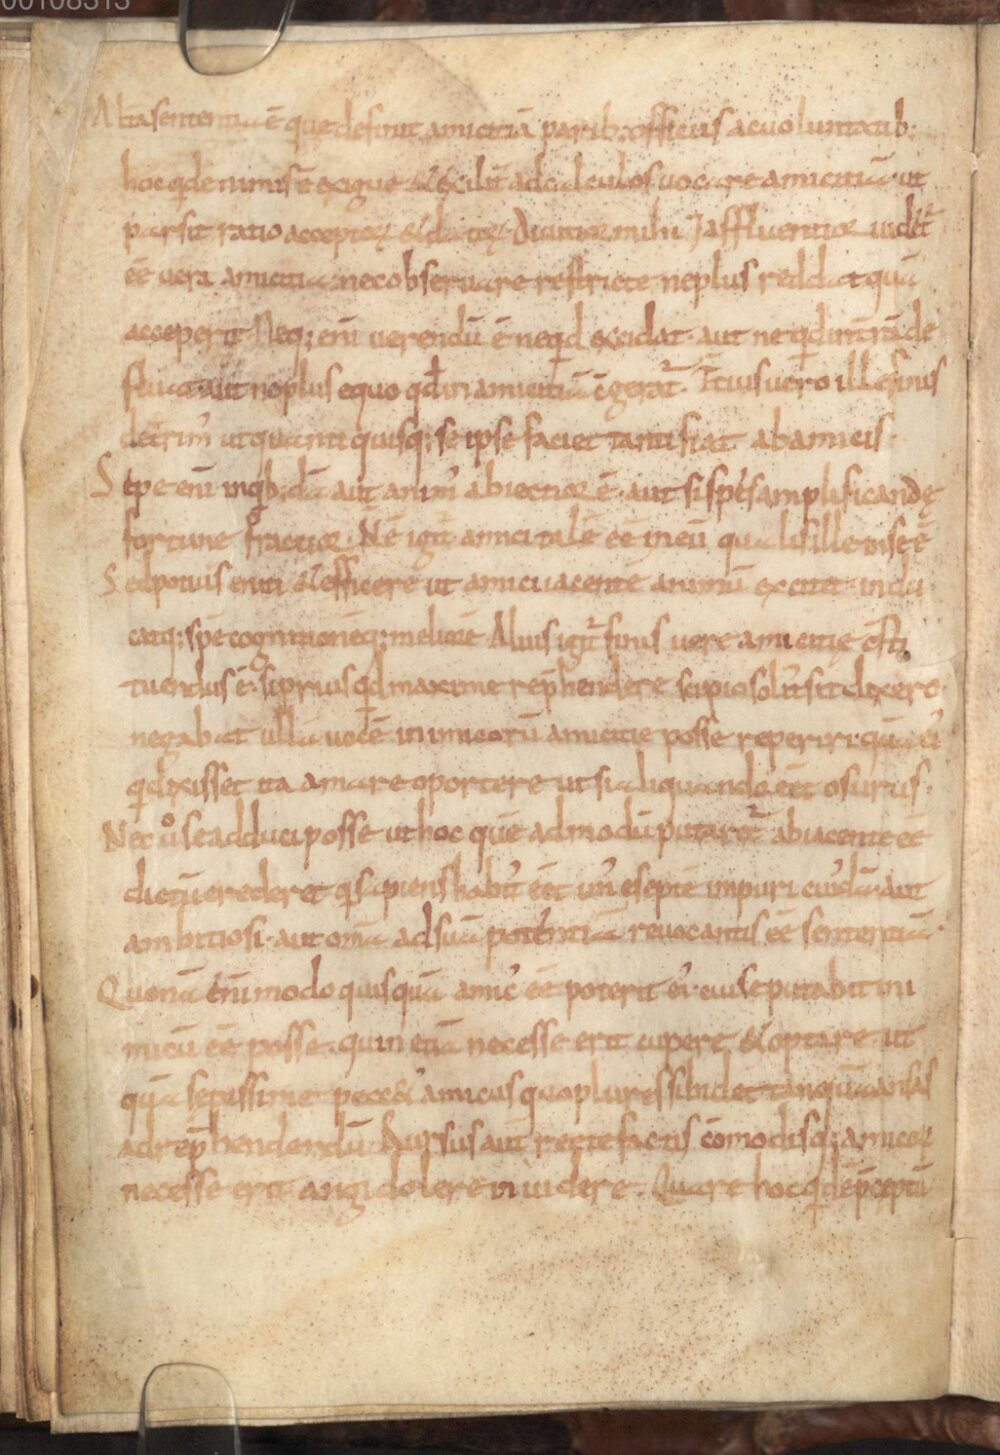 00108313
Altasententia ē que definit amicitiā parib; officiis acuoluntatib;
hoc qdē nimis ē exigue & exilit̄ ad calculos uocare amicitiā ut
par sit ratio acceptoꝝ & datoꝝ. Diuitior mihi ⁊ affluentior uidet᷑
eē uera amicitia nec obseruare restricte neplus reddat quā
acceperit Neq; eni uerendū ē neqd excidat aut neqd inträ de
fluat aut neplus equo qd in amicitiā cgerat᷑ Tcius uero ille finis
det̄rim̄ ut quanti quisq; se ipse faciet tanti fiat ab amicis.
Sepe eni inqb;dā aut anim̄ abiectior ē. aut si spes amplificandę
fortune fractior. N ē igit᷑ amici talē eē in eū qualis ille in se ē
Sed potius eniti & efficere ut amicu iacentē animū excitet indu
catq; spē cogitationēq; meliorē Alius igit᷑ finis uere amicitię cfti
tuendus ē. si prius qd maxime rep̄hendere scipio solit sit dixero.
negabat ullā uocē inimicorū amicitie posse reperiri quā ei᷒
q dixisset ita amare oportere ut si aliquando eēt osurus.
Nec uͦ se adduci posse ut hoc quē admodū putaret᷑ abiacente eē
dictū crederet q sapiens habit᷒ eēt un᷒ e septē impuri cui᷒dā aut
ambitiosi. aut om̄ia ad suā potentiā reuocantis eē sententiā.
Quonā eni modo quisquā amic᷒ eē poterit ei᷒ cui se putabit ini
micū eē posse. quin etiā necesse erit cupere & optare ut
quā sepissime pecc& amicus quo plures sibi det tanquā ansas
ad rep̄hendendū. Rursus aut recte factis comodisq; amicoꝝ
necesse erit angi dolere inuidere. Quare hoc qdē p̄ceptū